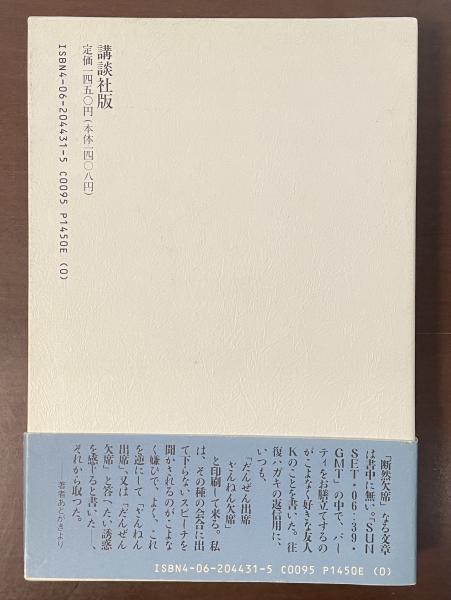 講談社版
定価一四五〇円(本体一四〇八円)
ISBN4-06-204431-5 C0095 P1450E (0)
「断然欠席」なる文章
は書中に無い。"SUN
SET・06・39・
GMT"の中で、パー
ティをお膳立てするの
がこよなく好きな友人
Kのことを書いた。往
復ハガキの返信用に、
いつも、
「だんぜん出席
ざんねん欠席」
と印刷して来る。私
は、その種の会合に出
て下らないスピーチを
聞かされるのがこよな
く嫌ひで、よく、これ
を逆にして「ざんねん
出席」、又は「だんぜん
欠席」と答へたい誘惑
を感じると書いた――、
それから取つた。
――著者あとがきより
ISBN4-06-204431-5 C0095 P1450E (0)